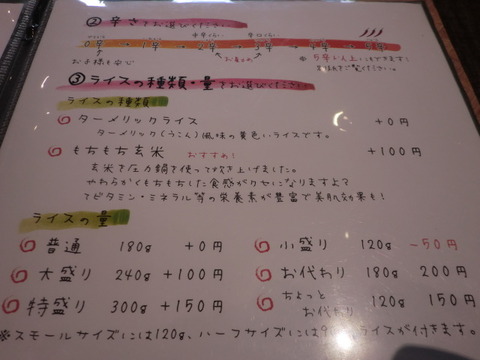 ② 辛さをお選びください
0辛 → 1辛 → 2辛 → 3辛 → 4辛 → 5辛
お子様も安心
おすすめ
※5辛以上にもできます!
③ ライスの種類・量をお選びください
ライスの種類
ターメリックライス +0円
ターメリック(うこん)風味の黄色いライスです。
もちもち玄米 おすすめ! +100円
玄米を圧力鍋を使って炊き上げました。
やわらかくもちもちした食感がクセになりますよ♪
でビタミン・ミネラル等の栄養素が豊富で美肌効果も!
ライスの量
普通 180g +0円
小盛り 120g -50円
大盛り 240g +100円
お代わり 180g 200円
特盛り 300g +150円
ちょっとお代わり 120g 150円
※スモールサイズには120g、ハーフサイズには90gライスが付きます。